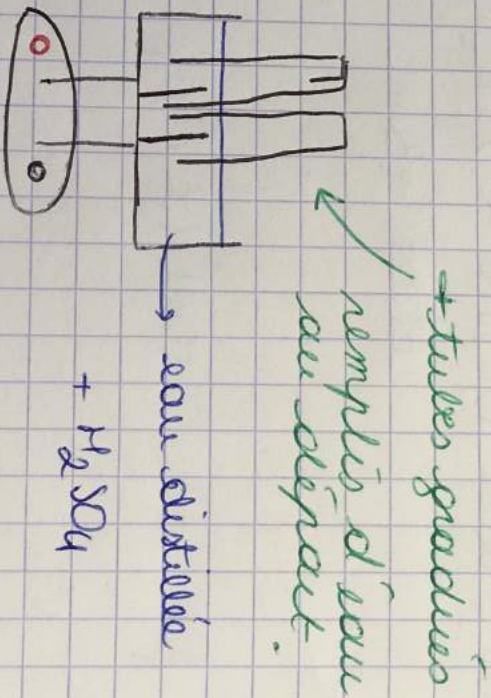 + tubes gradués
remplis d'eau
au départ.
eau distillée
+ H₂SO₄